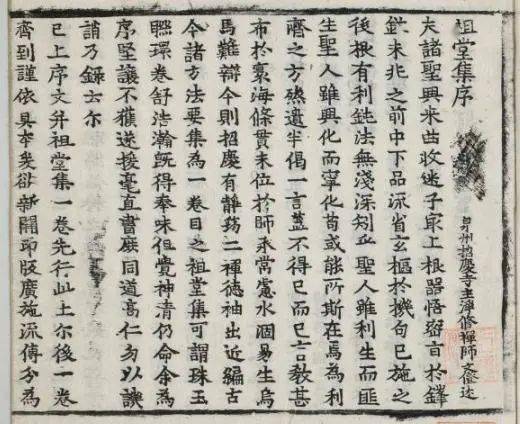 祖堂集序
泉州招慶寺主淨修禪師文僜述
夫諸聖興来曲收迷子最上根器悟密旨於鋒
鋩未兆之前中下品流省玄樞於機句已施之
後根有利鈍法無淺深矧乎聖人雖利生而匪
生聖人雖興化而寧化苟或能所斯在焉為利
濟之方然遺半偈一言蓋不得已而已言教甚
布於寰海條貫未位於師承常慮水涸易生烏
馬難辯今則招慶有靜筠二禪德袖出近編古
今諸方法要集為一卷目之祖堂集可謂珠玉
聯環卷舒浩瀚既得奉味但覺神清仍命余為
序堅讓不獲遂援毫直書庶同道高仁勿以譏
誚乃錄云尔
已上序文并祖堂集一卷先行此土尔後一卷
齊到謹依具本爰欲新開印版廣施流傳分為